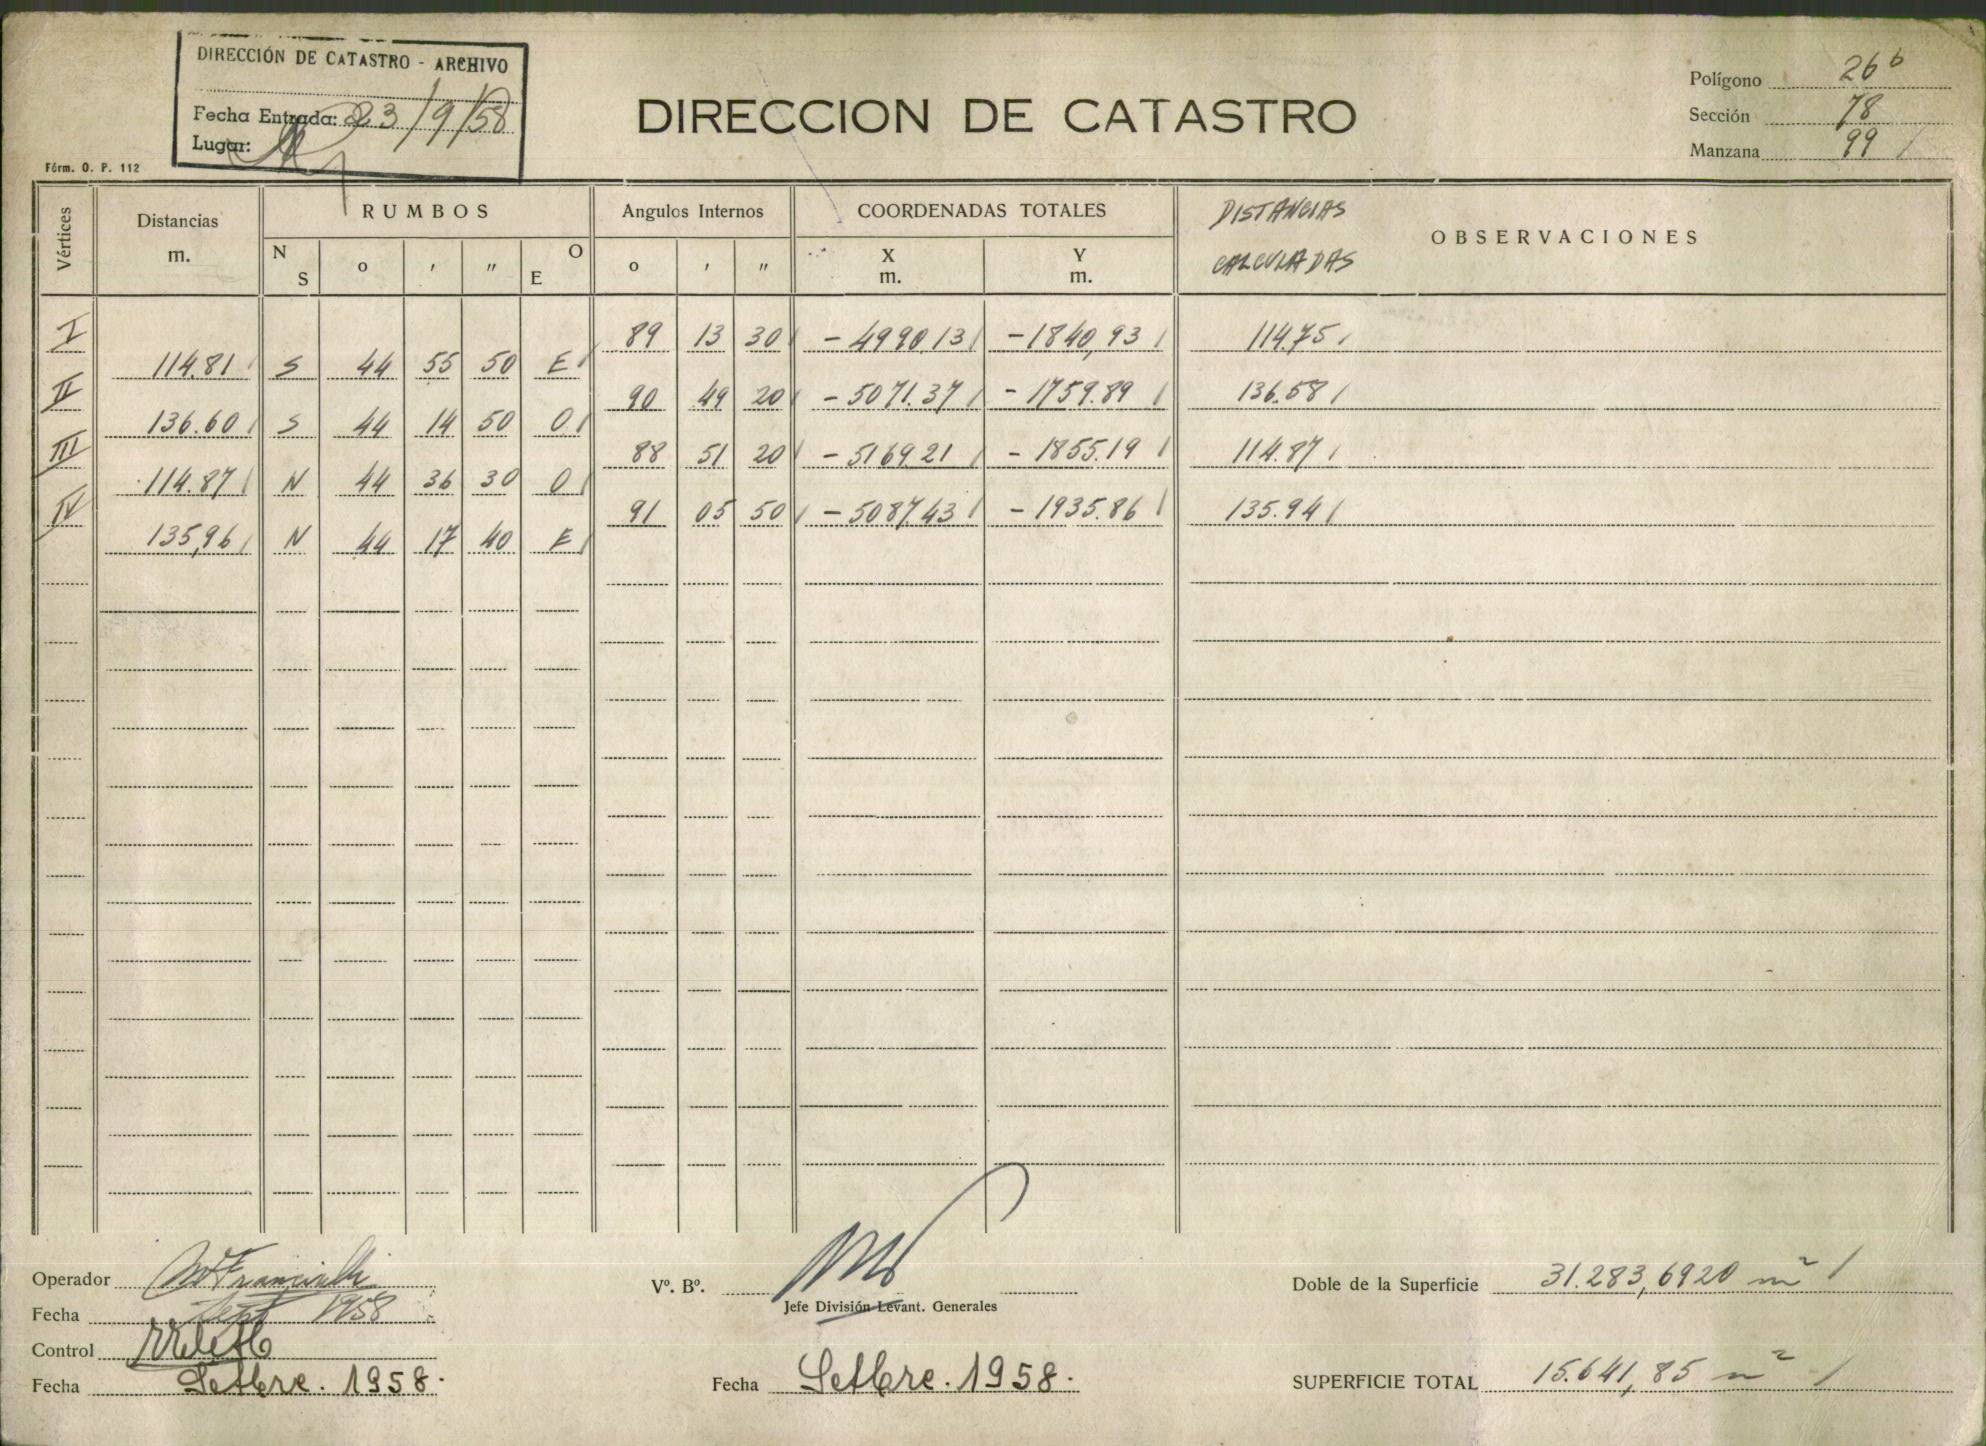 DIRECCIÓN DE CATASTRO - ARCHIVO
Fecha Entrada: 23/9/58
Lugar:
Fórm. O. P. 112
DIRECCION DE CATASTRO
Polígono 26 b
Sección 78
Manzana 99
Vértices Distancias m. RUMBOS Angulos Internos COORDENADAS TOTALES DISTANCIAS CALCULADAS OBSERVACIONES
N S o ' " O E o ' " X m. Y m.
I 89 13 30 - 4990,13 - 1840,93 114.75
114.81 S 44 55 50 E
II 90 49 20 - 5071.37 - 1759.89 136.58
136.60 S 44 14 50 O
III 88 51 20 - 5169.21 - 1855.19 114.87
114.87 N 44 36 30 O
IV 91 05 50 - 5087.43 - 1935.86 135.94
135,96 N 44 17 40 E
Operador
Fecha Sept 1958
Control
Fecha Setbre. 1958.
Vº. Bº.
Jefe División Levant. Generales
Fecha Setbre. 1958.
Doble de la Superficie 31.283,6920 m²
SUPERFICIE TOTAL 15.641,85 m²